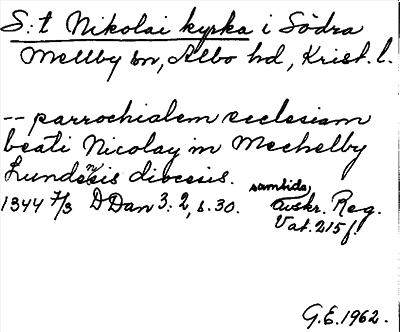 S:t Nikolai kyrka i Södra
Mellby sn, Albo hd, Krist. l.
-- parrochialem ecclesiam
beati Nicolay in Mechelby
Lundensis diocesis.
1344 7/3 D Dan 3:2, s. 30. samtida avskr. Reg.
Vat. 215 f.
G.E. 1962.